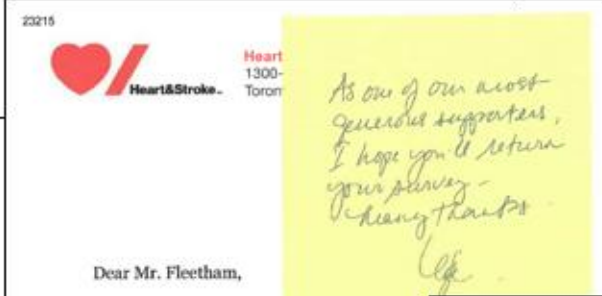 23215
Heart&Stroke™
Heart
1300-
Toron
As one of our most
generous supporters,
I hope you'll return
your survey –
Many thanks
Dear Mr. Fleetham,